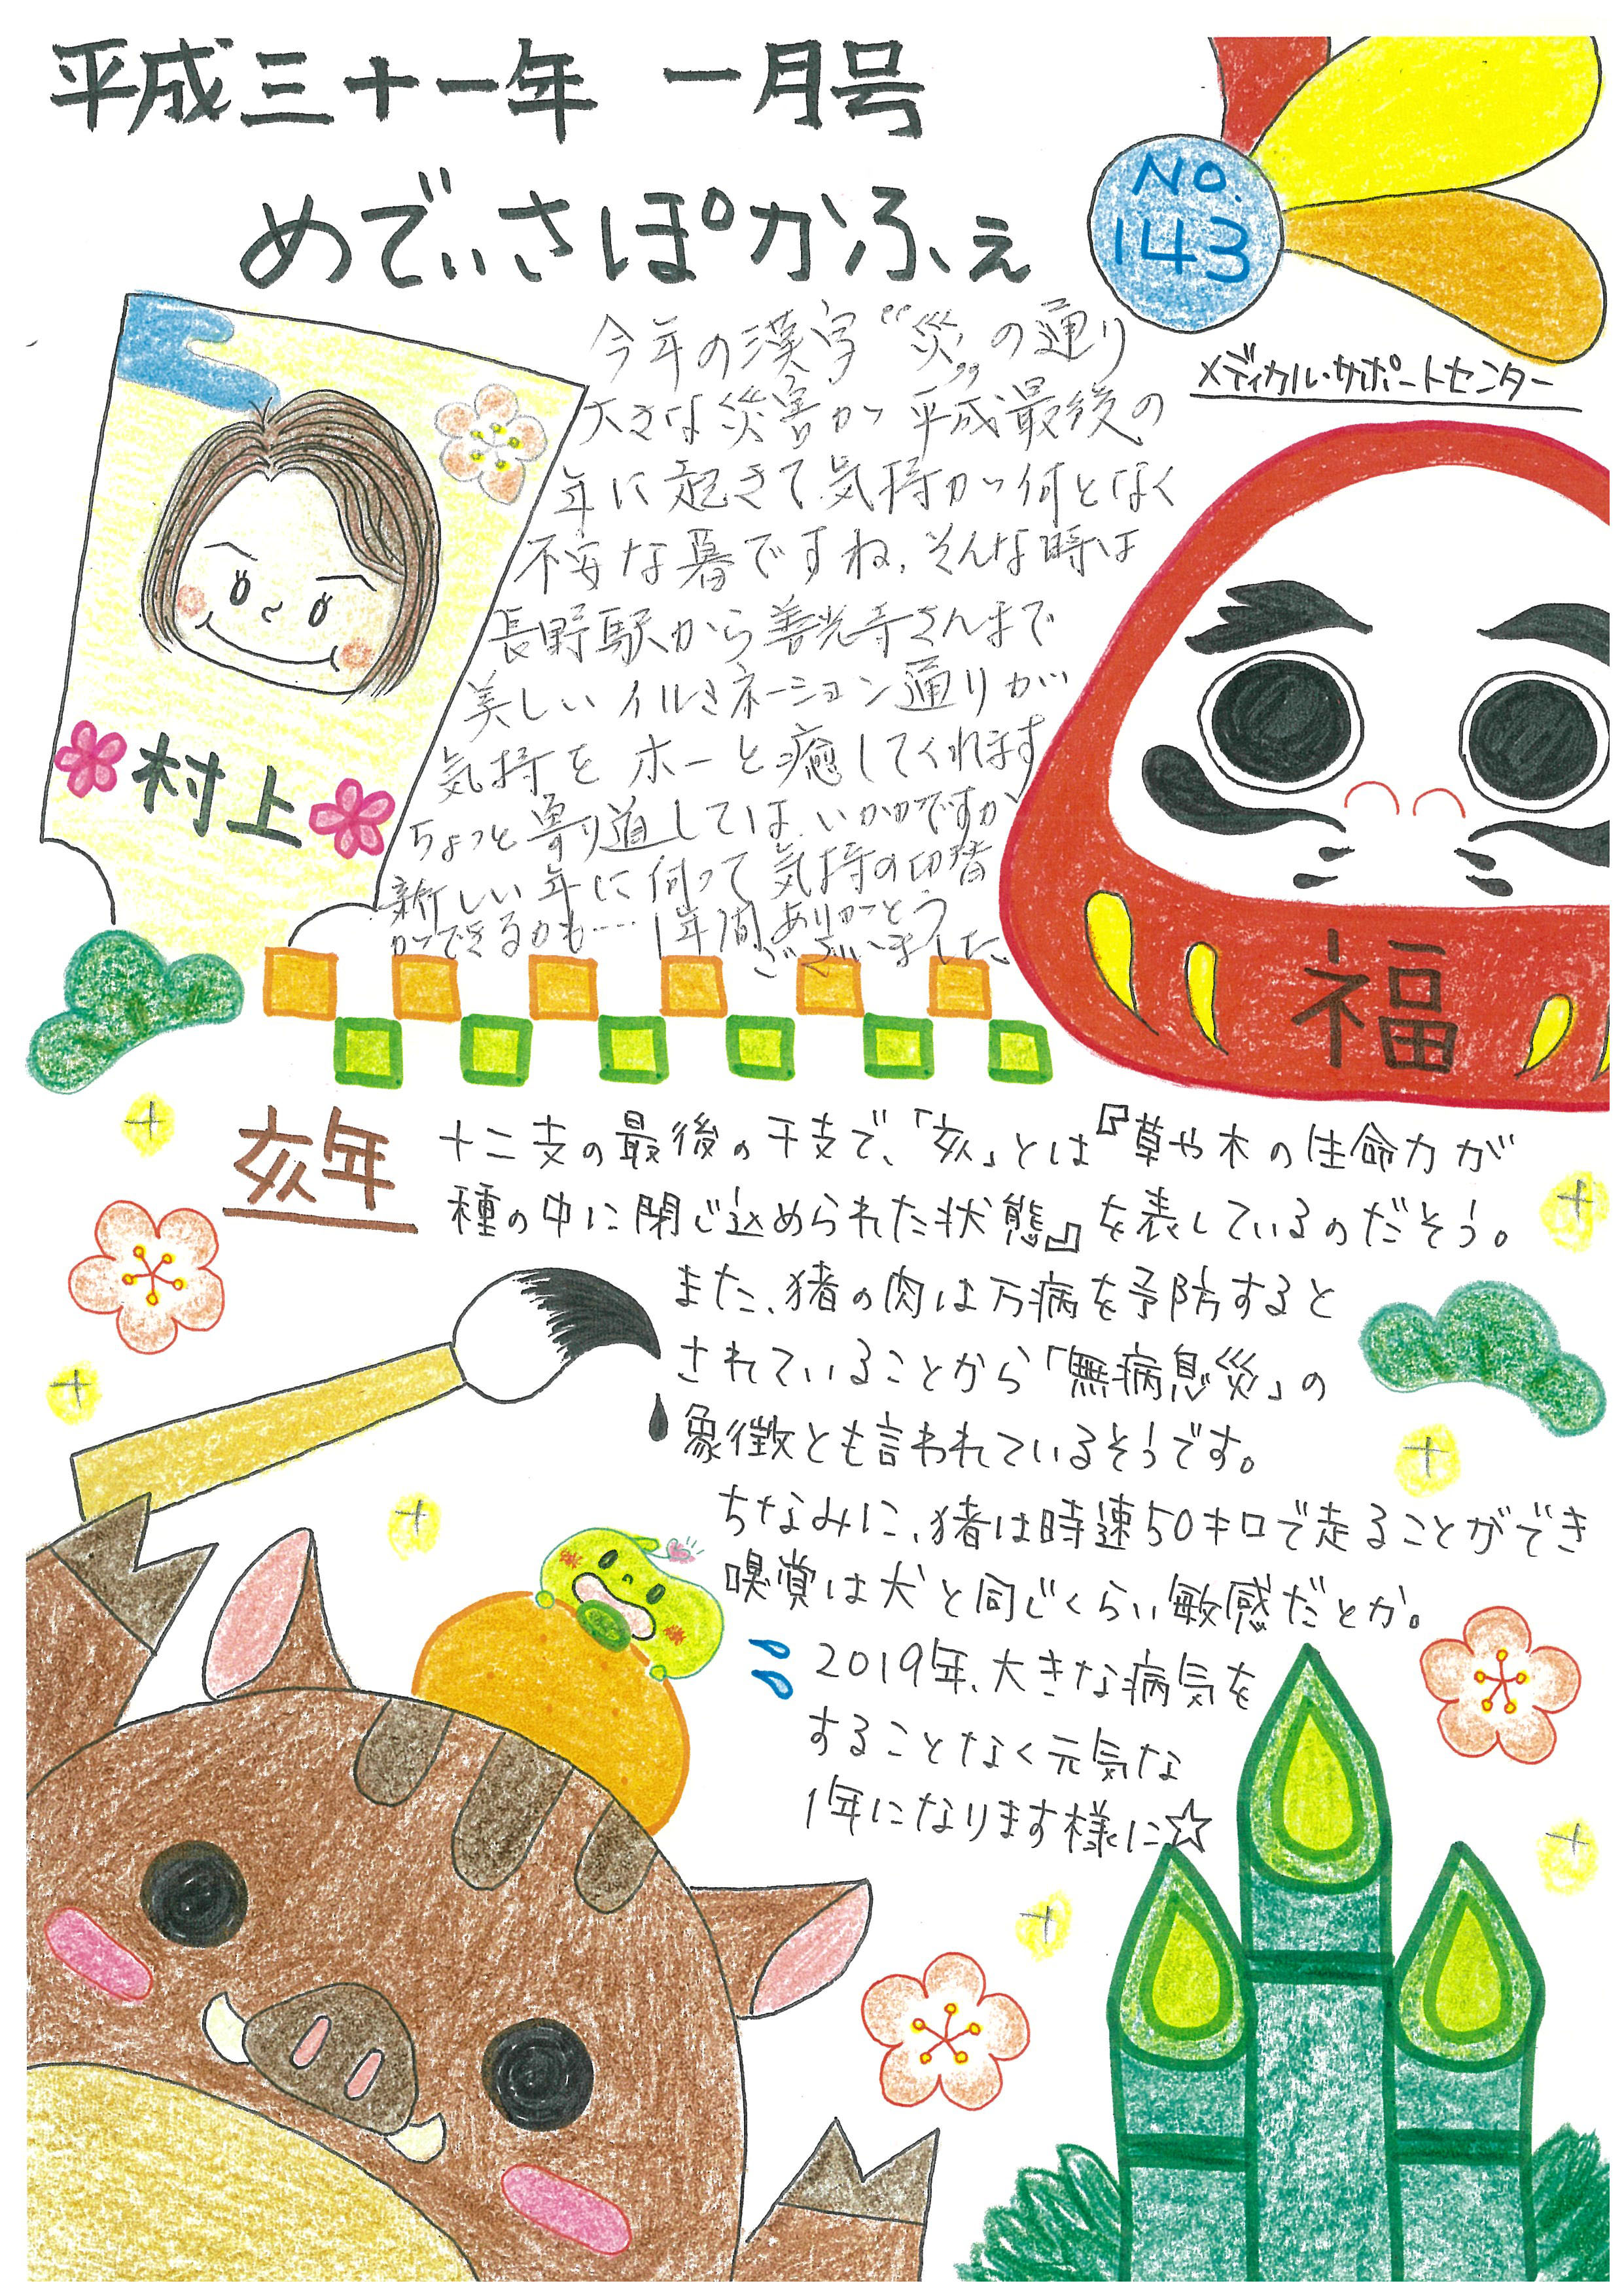 平成三十一年 一月号
めでぃさぽかふぇ
NO.
143
メディカル・サポートセンター
今年の漢字〝災〟の通り
大きな災害が平成最後の
年に起きて気持が何となく
不安な暮ですね、そんな時は
長野駅から善光寺さんまで
美しいイルミネーション通りが
気持をホーと癒してくれます
ちょっと寄り道しては、いかがですか
新しい年に向って気持の切替
ができるかも…1年間ありがとう
ございました
村上
福
亥年
十二支の最後の干支で、「亥」とは『草や木の生命力が
種の中に閉じ込められた状態』を表しているのだそう。
また、猪の肉は万病を予防すると
されていることから「無病息災」の
象徴とも言われているそうです。
ちなみに、猪は時速50キロで走ることができ
嗅覚は犬と同じくらい敏感だとか。
2019年、大きな病気を
することなく元気な
1年になります様に☆